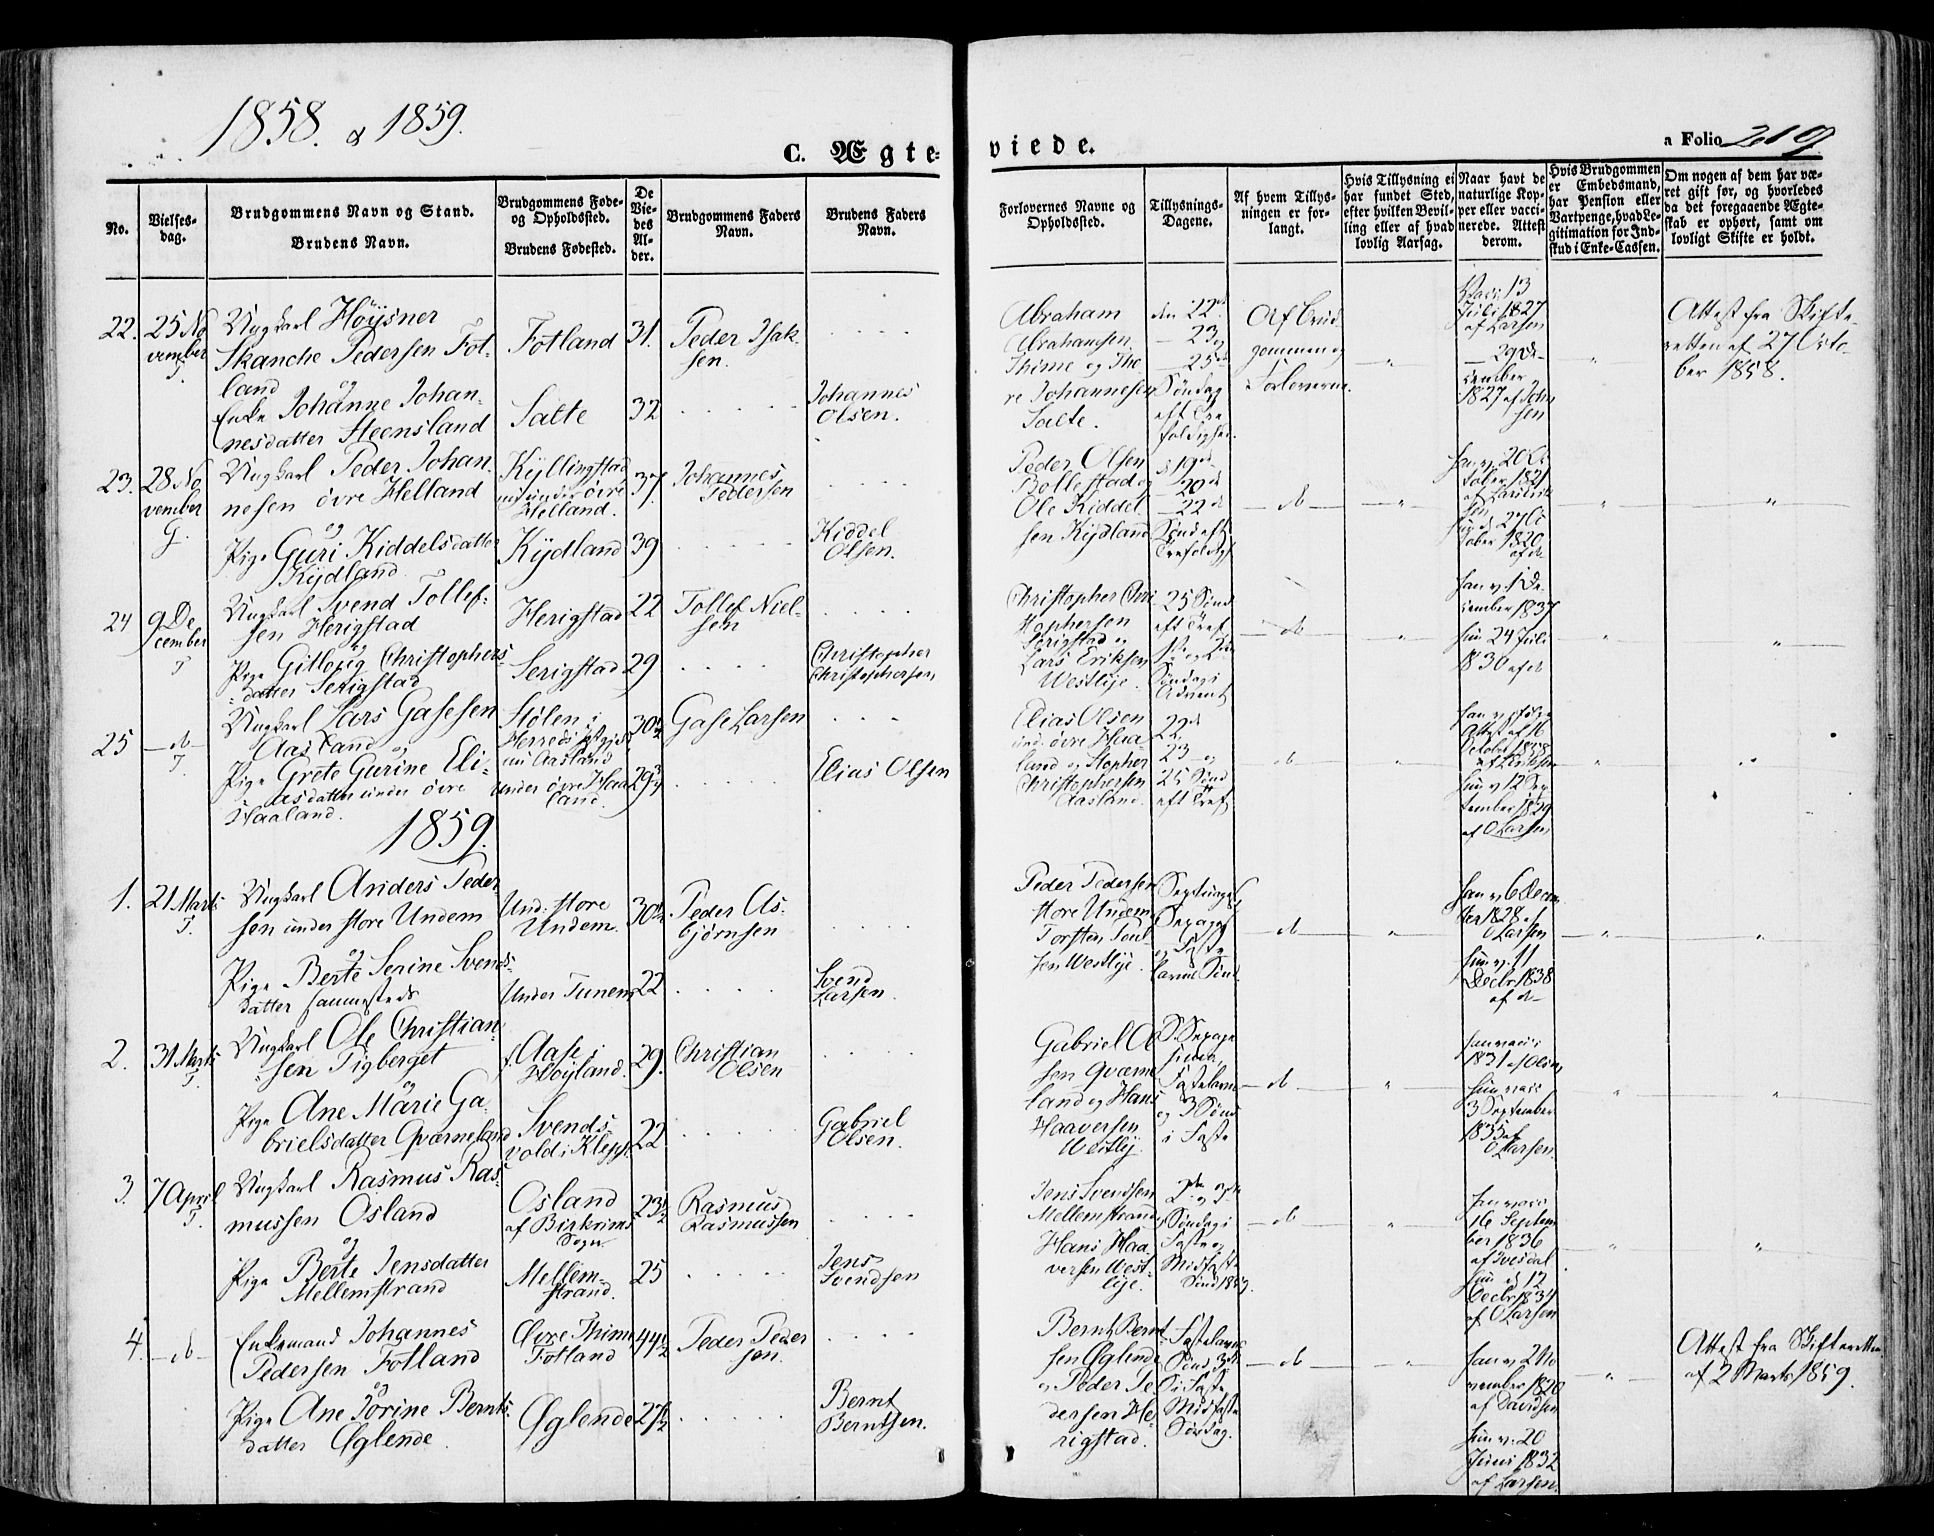 1858. & 1859.
C. Ægte-
viede.
a Folio 219
No.
Vielses-
dag.
Brudgommens Navn og Stand.
Brudens Navn.
Brudgommens Føde-
og Opholdssted.
Brudens Fødested.
De
Vie-
des
Al-
der.
Brudgommens Faders
Navn.
Brudens Faders
Navn.
Forlovernes Navne og
Opholdssted.
Tillysnings-
Dagene.
Af hvem Tillys-
ningen er for-
langt.
Hvis Tillysning ei
har fundet Sted,
efter hvilken Bevil-
ling eller af hvad
lovlig Aarsag.
Naar havt de
naturlige Kop-
per eller vacci-
nerede. Attest
derom.
Hvis Brudgommen
er Embedsmand,
har Pension eller
Vartpenge, hvad Le-
gitimation for Ind-
skud i Enke-Cassen.
Om nogen af dem har væ-
ret gift før, og hvorledes
da det foregaaende Ægte-
skab er ophørt, samt om
lovligt Skifte er holdt.
22. 25 No
vember
T.
Ungkarl Höysner
Skanche Pedersen Fot-
land
og
Enke Johanne Johan-
nesdatter Steensland
Fotland
Salte
31.
32
Peder Isak-
sen.
Johannes
Olsen.
Abraham
Abrahamsen
Thime og Tho
re Johannesen
Salte.
den 22de
— 23 og
— 25de
Søndag
eft Tre
foldighed.
Af Brud
gommen og
Forloverne.
Vacc: 13
Juli 1827
af Larsen
— 29 De-
cember
1827 af John
sen
Attest fra Skifte-
retten af 27 Octo-
ber 1858.
23. 28 No
vember
G.
Ungkarl Peder Johan-
nesen övre Helland
og
Pige Guri Kiddelsdatter
Kydland.
Kyllingstad
nu under övre
Helland.
Kydland
37
39
Johannes
Pedersen
Kiddel
Olsen.
Peder Olsen
Bollestad og
Ole Kiddel
sen Kydland
d 19de
— 20de
— 22de
Sønd eft
Trefoldigh
— do —
han v. 20 Oc
tober 1821
hun d 27 Oc
tober 1820
af do
24 9 De
cember
T
Ungkarl Svend Tollef-
sen Herigstad
og
Pige Gitlovig Christophers
datter Serigstad
Herigstad
Serigstad
22
29
Tollef Niel-
sen
Christopher
Christophersen
Christopher Chri
stophersen
Serigstad og
Lars Eriksen
Westlye.
25 Sønd
eft Tref
1ste og 2den
Søndag i
Advent
— do —
han v. 1 De
cember 1837
hun 24 Juli
1830 af do
25 — do —
T.
Ungkarl Lars Gasesen
Aasland
og
Pige Grete Gurine Eli-
asdatter under övre
Haaland.
Stølen i
nu Aasland
under övre Haa
land.
30½
29¾
Gase Larsen
Elias Olsen
Elias Olsen
und. övre Haa
land og Stopher
Christophersen
Aasland.
22de
23 og
25 Sønd
eft Tref
do
October 1858
hun v 12 Sep
tember 1829
af O Larsen
1859.
1. 21 Marts
T.
Ungkarl Anders Peder
sen under store Undem
og
Pige Berte Serine Svends-
datter sammesteds
Und: store
Undem.
Under Tunem
30½
22
Peder As-
bjørnsen
Svend
Larsen.
Peder Pedersen
store Undem
Torsten Poul
sen Westlye.
— do —
han v. 6 Decem
ber 1828 af
O Larsen
hun v. 11
Decbr 1838
af do
2. 31 Marts
T.
Ungkarl Ole Christian-
sen Tigberget
og
Pige Ane Marie Ga-
brielsdatter Qværneland
f. Aase i
Høyland.
Svends-
vold i Klepp.
29.
22
Christian
Olsen
Gabriel
Olsen.
Gabriel Ol
sen Qværne
land og Hans
Haaversen
Westly.
S. Sexage
sima,
Fastelavn
og 3 Sønd
i Faste
— do —
han vacc:
1831 af Olsen
hun vacc
3 September
1835 af
O Larsen.
3. 7 April
T.
Ungkarl Rasmus Ras-
mussen Osland
og
Pige Berte Jensdatter
Mellemstrand
Osland
af Birkrims
Sogn.
Mellem-
strand.
23½
25
Rasmus
Rasmussen
Jens
Svendsen
Jens Svendsen
Mellemstrand
Hans Haa-
versen West-
lye.
2den og 3die
Søndag i
Faste og
Midfaste
Sønd 1859.
— do —
han vacc:
16 Septem
ber 1836
af Ivesdal
hun d 12
Decbr 1834
af O Larsen
4. — do —
Enkemand Johannes
Pedersen Fotland
og
Pige Ane Jörine Bernts-
datter Øglende.
Øvre Thime
Fotland
Øglende
44½
27½
Peder Peder
sen.
Bernt
Berntsen.
Bernt Bernt
sen Øglende
og Peder Pe-
dersen He-
rigstad.
Fastelavns
Sønd, 3die
S i Faste
Midfaste
Søndag.
— do —
han v. 2 No
vember 1820
af Davidsen
hun v. 20
Juni 1832
af Larsen.
Attest fra Skifteretten
af 2 Marts 1859.